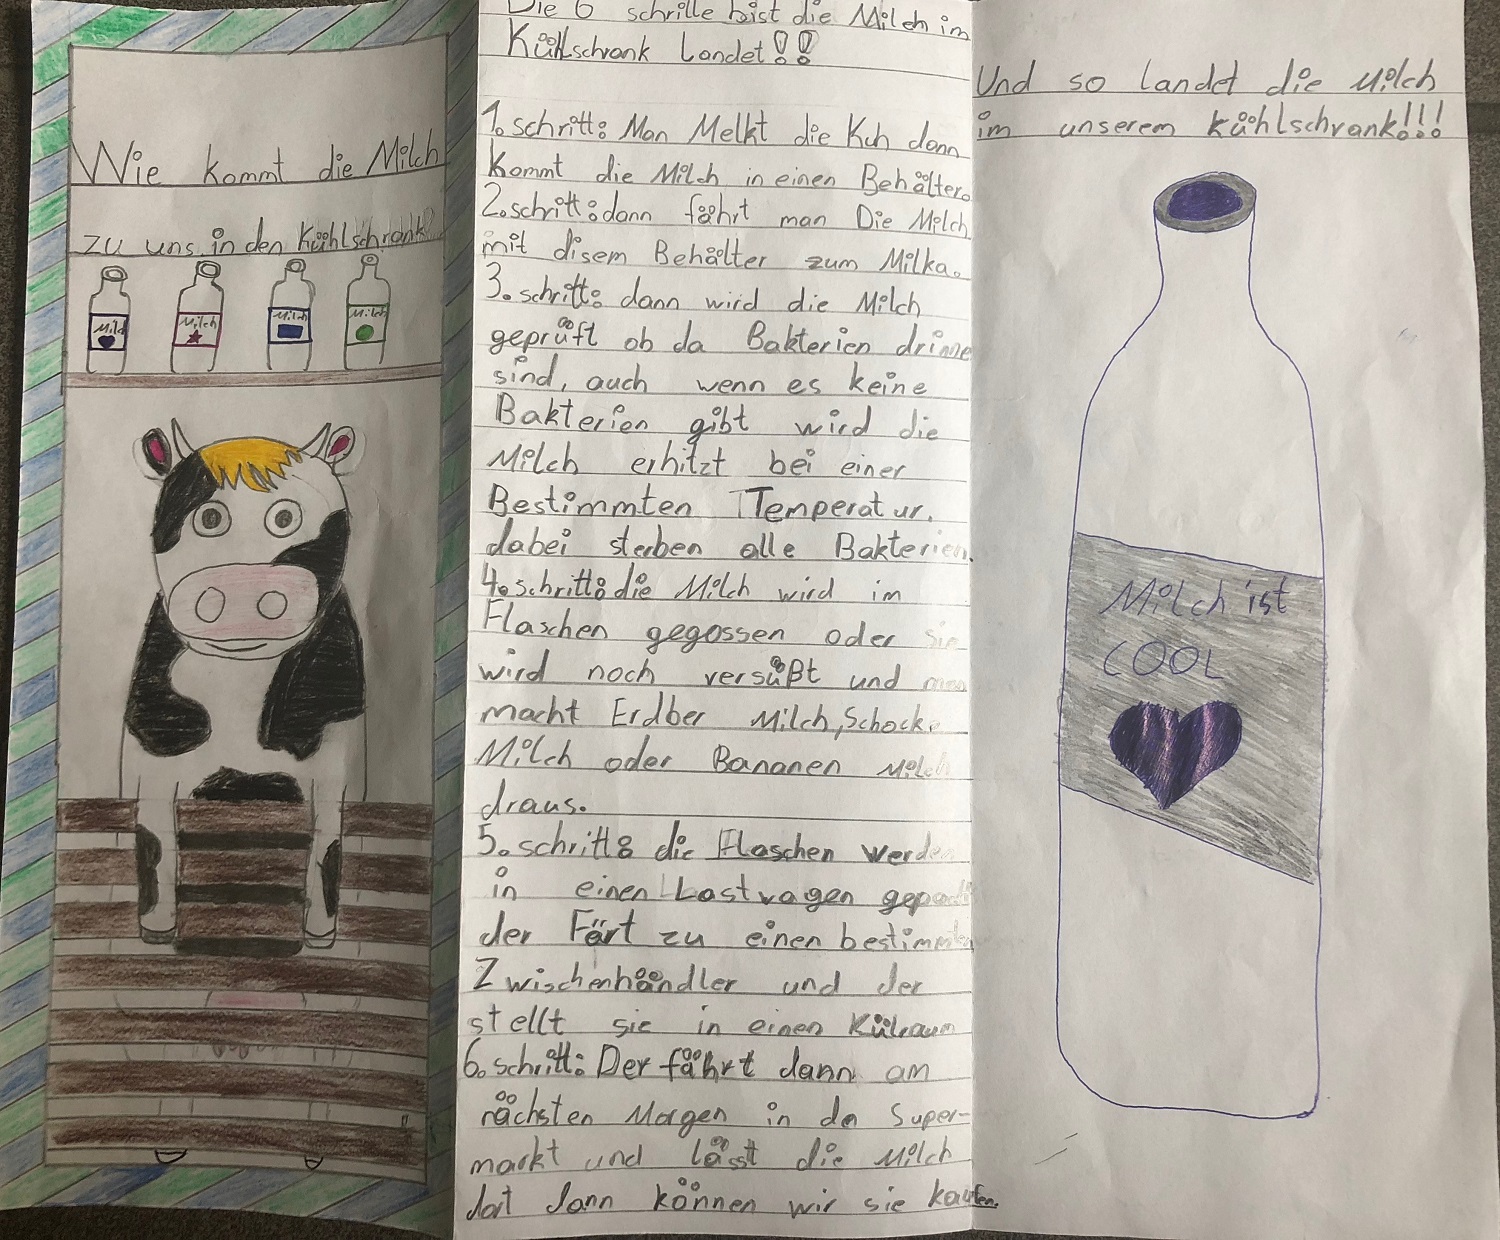 Wie kommt die Milch
zu uns in den Kühlschrank?
Milch
Milch
Milch
Milch
Die 6 schritte bist die Milch im
Kühlschrank Landet!!
1. schritt: Man Melkt die Kuh dann
kommt die Milch in einen Behälter.
2. schritt: dann fährt man Die Milch
mit disem Behälter zum Milka.
3. schritt: dann wird die Milch
geprüft ob da Bakterien drinne
sind, auch wenn es keine
Bakterien gibt wird die
Milch erhitzt bei einer
Bestimmten Temperatur.
dabei sterben alle Bakterien.
4. schritt: die Milch wird im
Flaschen gegossen oder sie
wird noch versüßt und man
macht Erdber Milch, Schock.
Milch oder Bananen Milch
draus.
5. schritt: die Flaschen werden
in einen Lastwagen gepackt
der Färt zu einen bestimmten
Zwischenhändler und der
stellt sie in einen Külraum
6. schritt: Der fährt dann am
nächsten Morgen in de Super-
markt und lässt die Milch
dort dann können wir sie kaufen.
Und so landet die Milch
im unserem Kühlschrank!!!
Milch ist
COOL